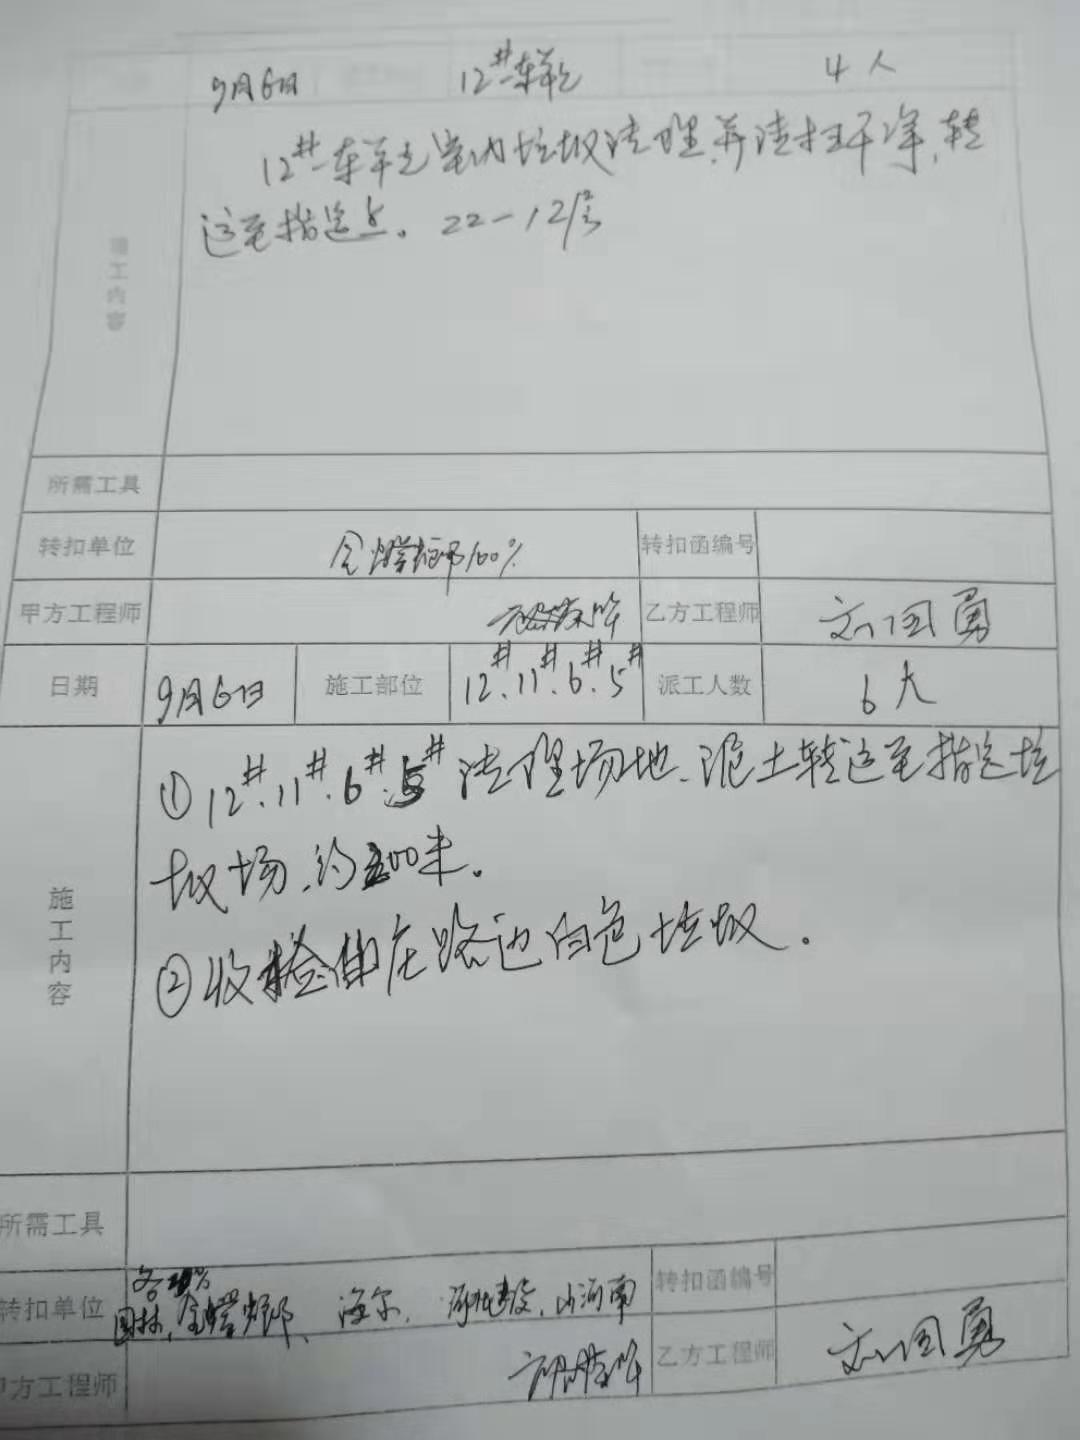 9月6日 12#一车单元 4人
施工内容
12#一车单元室内垃圾清理,并清扫干净,转
运至指定点。22-12层
所需工具
转扣单位 100% 转扣函编号
甲方工程师 乙方工程师 刘国勇
日期 9月6日 施工部位 12#.11#.6#.5# 派工人数 6人
施工内容
①12#.11#.6#.5#清理场地、泥土转运至指定垃
圾场,约200米。
②收捡在路边白色垃圾.
所需工具
各20%
转扣单位 园林、海尔、山河南 转扣函编号
甲方工程师 乙方工程师 刘国勇